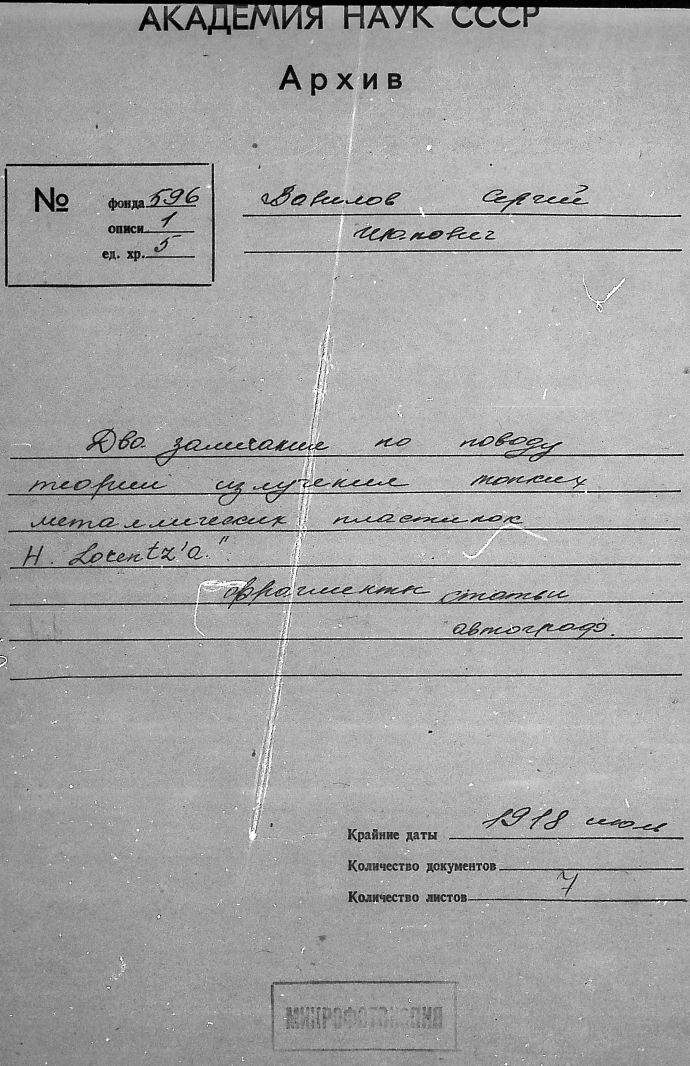 АКАДЕМИЯ НАУК СССР
Архив
№
фонда 596
описи 1
ед. хр. 5
Вавилов Сергей
Иванович
Два замечания по поводу
теории излучения тонких
металлических пластинок
H. Lorentz'a."
фрагменты статьи
автограф.
Крайние даты 1918 июль
Количество документов
Количество листов 7
МИКРОФОТОКОПИЯ